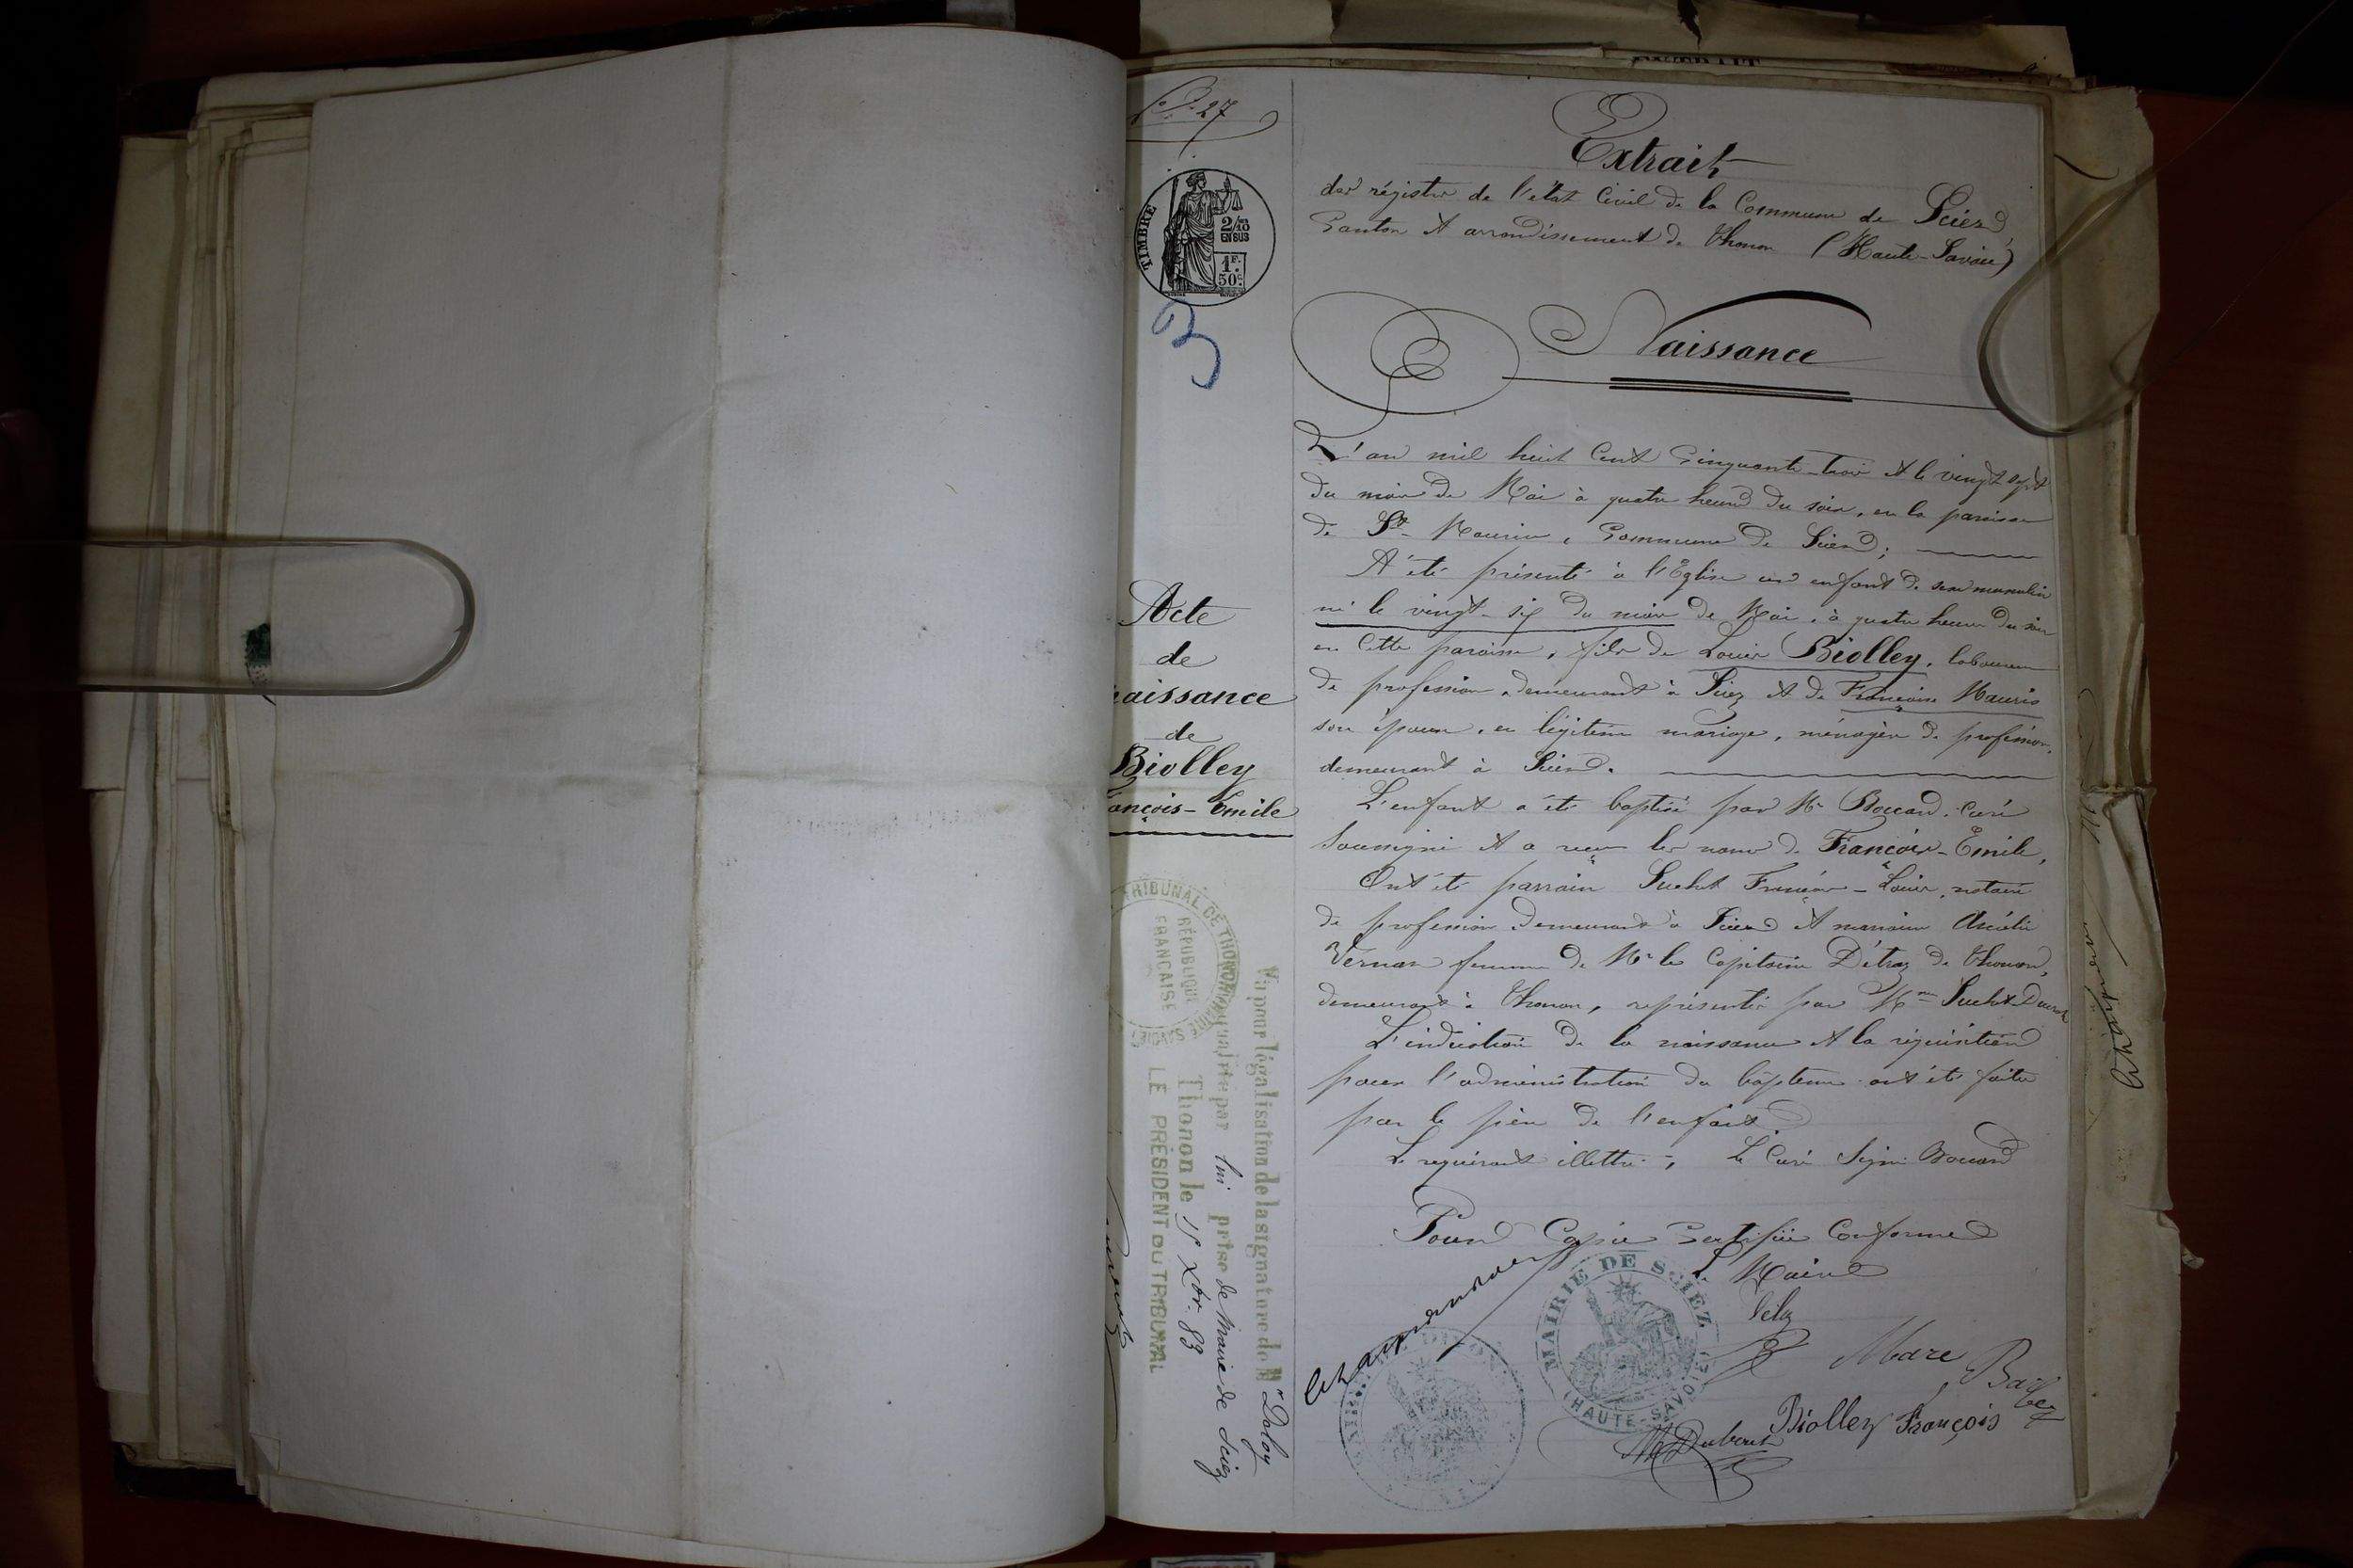 27
TIMBRE
2/10
EN SUS
1F.
50c.
3
Acte
de
naissance
de
Biolley
François-Emile
TRIBUNAL DE THONON
RÉPUBLIQUE
FRANCAISE
Vu pour légalisation de la signature de Mr Deloy
par lui prise de Maire de Sciez
Thonon le 15 Xbr. 83
LE PRÉSIDENT DU TRIBUNAL
Extrait
des régistre de l'état Civil de la Commune de Sciez
Canton et arrondissement de Thonon (Haute-Savoie)
Naissance
L'an mil huit Cent Cinquante-trois et le vingt sept
du mois de Mai à quatre heures du soir, en la paroisse
de St Maurice, Commune de Sciez;
A été présenté à l'Eglise un enfant de sexe masculin
né le vingt-six du mois de Mai, à quatre heures du soir
en Cette paroisse, fils de Louis Biolley, laboureur
de profession, demeurant à Sciez et de Françoise Mauris
son épouse, en légitime mariage, ménagère de profession,
demeurant à Sciez.
L'enfant a été baptisé par Mr Boccard, Curé
Soussigné et a reçu les noms de François-Emile,
Ont été parrain Suchet François-Louis, notaire
de profession demeurant à Sciez et marraine
femme de Mr le Capitaine Détraz de Thonon,
demeurant à Thonon, représentée par Mme Suchet
L'indication de la naissance et la réquisition
pour l'administration du baptême ont été faites
par le père de l'enfant.
Le requérant illettré, Le Curé Signé Boccard
Pour Copie Certifiée Conforme
Le Maire
MAIRIE DE SCIEZ
(HAUTE-SAVOIE)
Biolley François